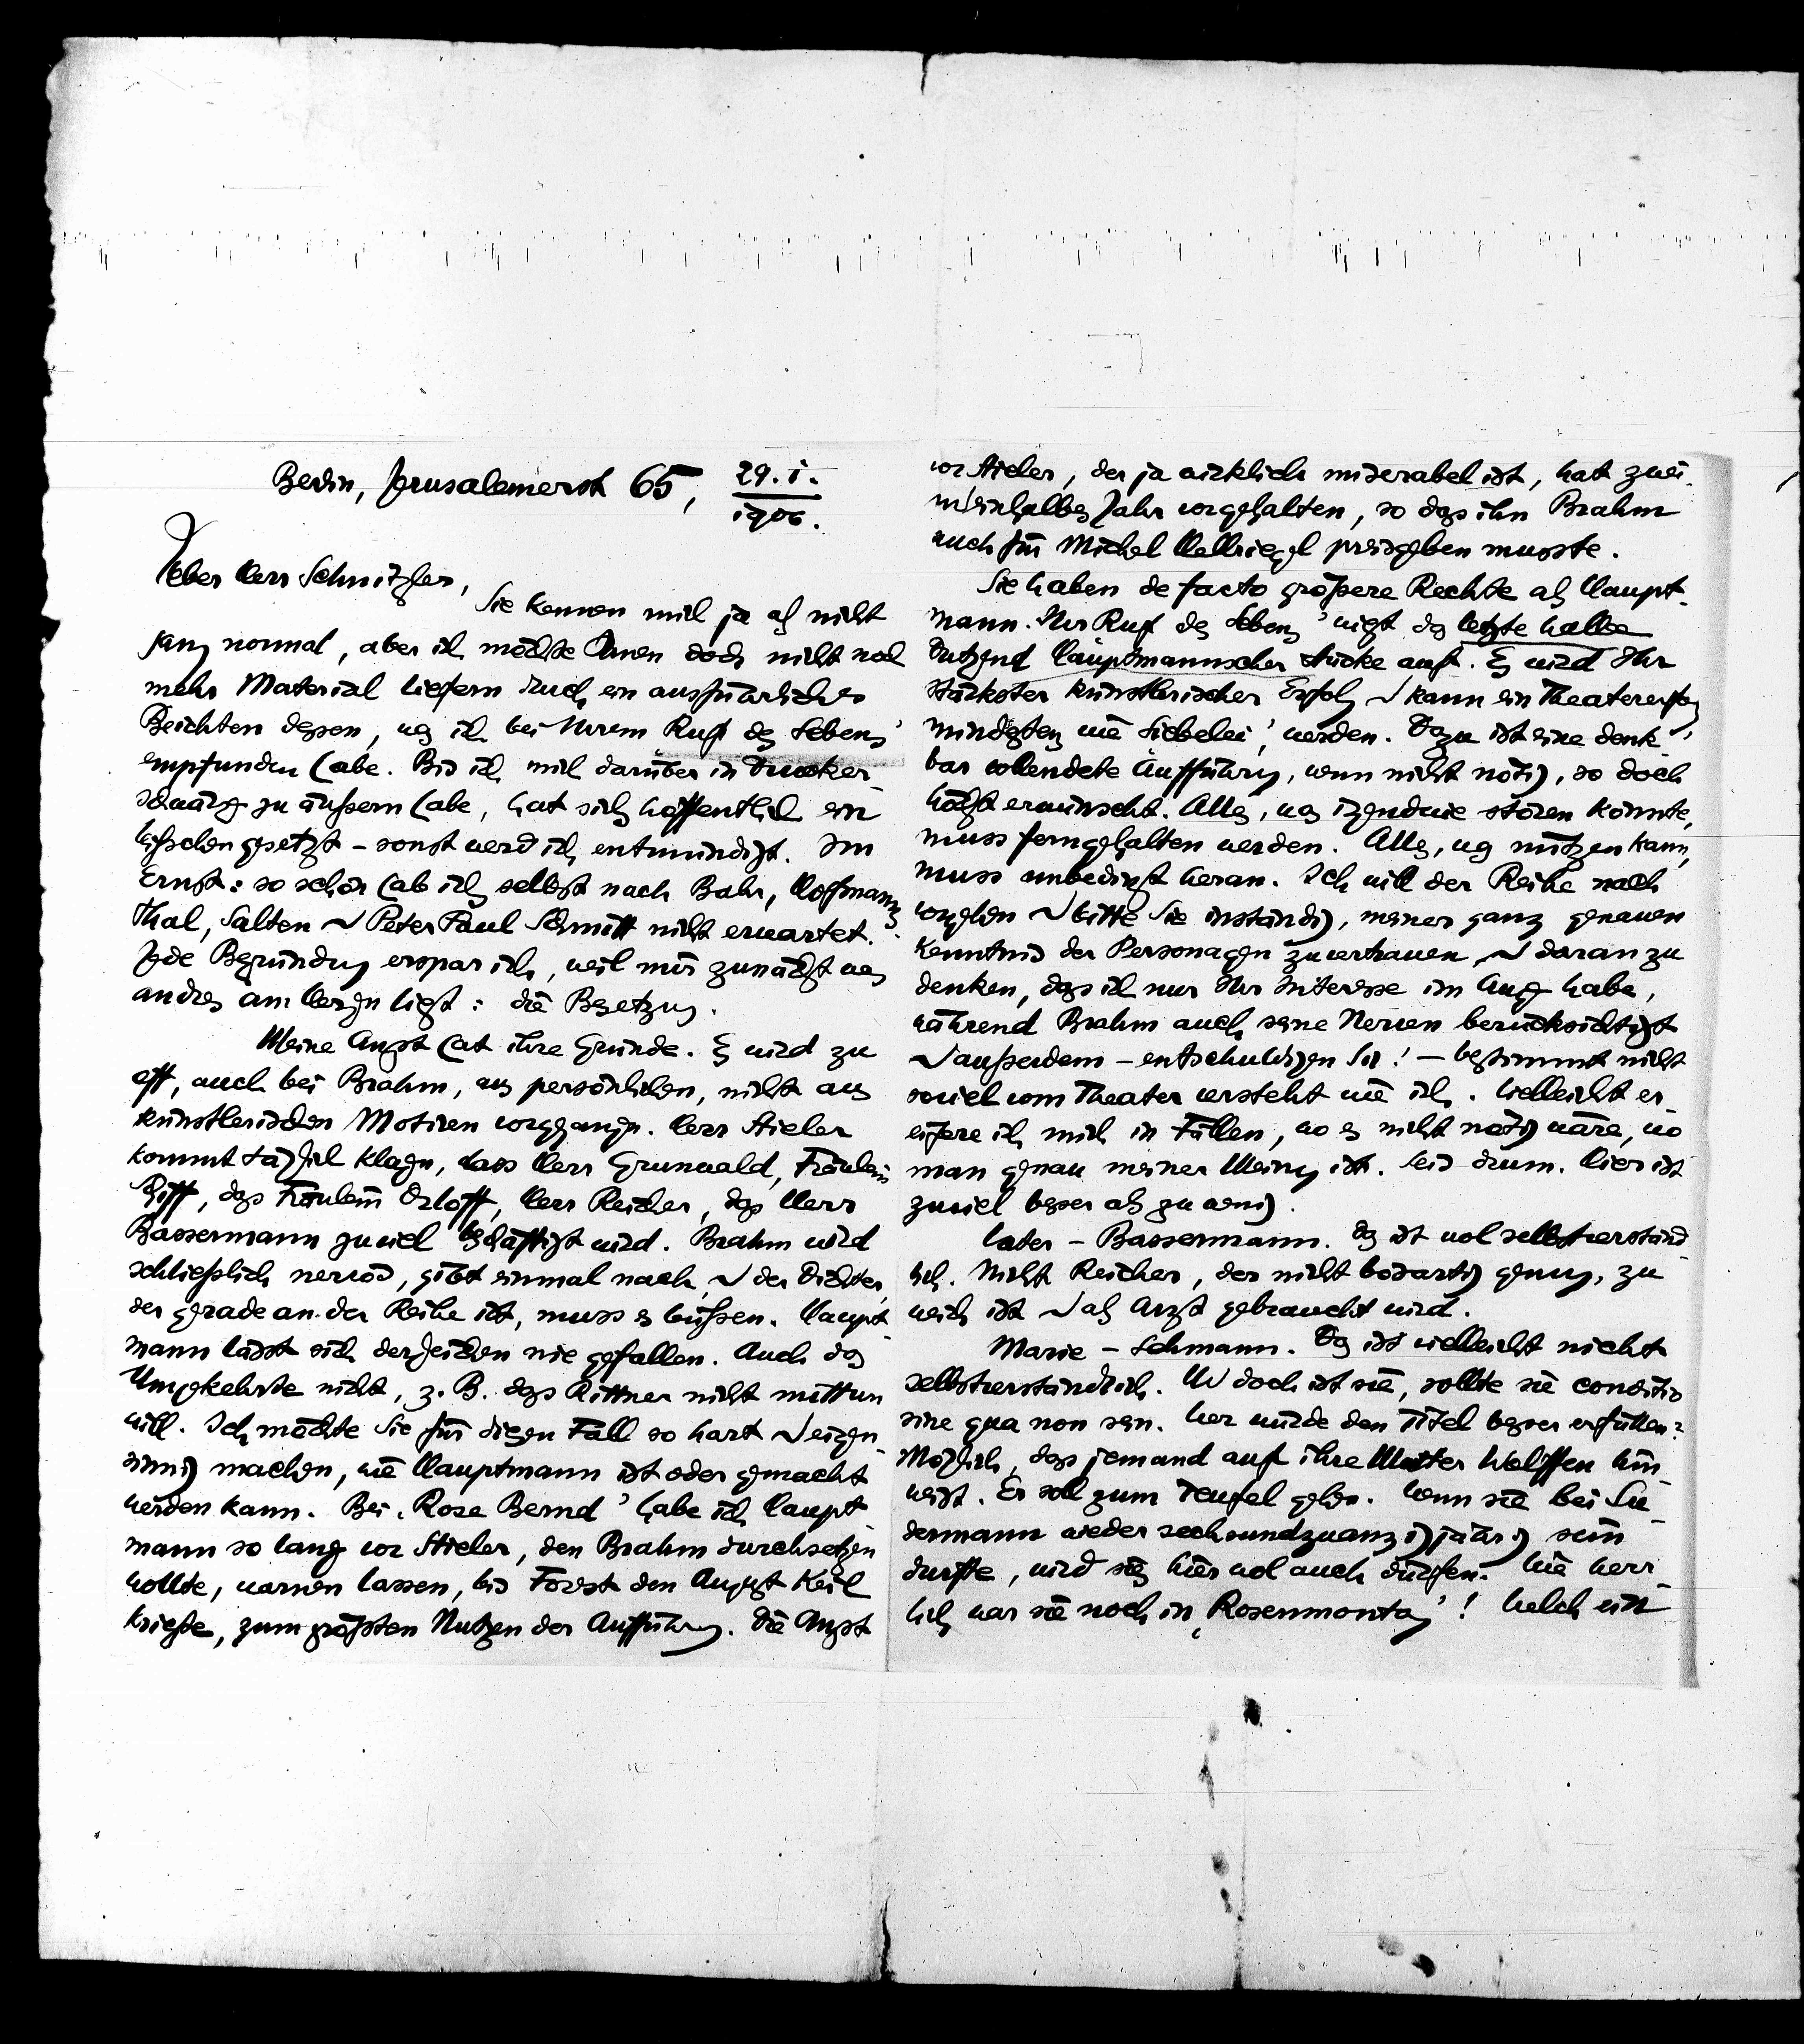 Berlin, Jerusalemerst 65, 29. I. 1906.
Lieber Herr Schnitzler,
Sie kennen mich ja als nicht
ganz normal, aber ich möchte Ihnen doch nicht noch
mehr Material liefern durch ein ausführliches
Beichten dessen, was ich bei Ihrem ‚Ruf des Lebens‘
empfunden habe. Bis ich mich darüber in Drucker-
schwärze zu äußern habe, hat sichs hoffentlich ein
bisschen gesetzt – sonst werd ich entmündigt. Im
Ernst: so schön hab ichs selbst nach Bahr, Hoffmanns-
thal, Salten u Peter Paul Schmitt nicht erwartet.
Jede Begründung erspar ich, weil mir zunächst was
andres am Herzen liegt: die Besetzung.
Meine Angst hat ihre Gründe. Es wird zu
oft, auch bei Brahm, aus persönlichen, nicht aus
künstlerischen Motiven vorgegangen. Herr Stieler
kommt täglich klagen, dass Herr Grunwald, Fräulein
Riff, dass Fräulein Orloff, Herr Reicher, dass Herr
Bassermann zuviel beschäftigt wird. Brahm wird
schließlich nervös, gibt einmal nach, u der Dichter,
der gerade an der Reihe ist, muss es büßen. Haupt-
mann lässt sich dergleichen nie gefallen. Auch das
Umgekehrte nicht, z. B. dass Rittner nicht mittun
will. Ich möchte Sie für diesen Fall so hart u eigen-
sinnig machen, wie Hauptmann ist oder gemacht
werden kann. Bei ‚Rose Bernd‘ habe ich Haupt-
mann so lang vor Stieler, den Brahm durchsetzen
wollte, warnen lassen, bis Forest den August Keil
kriegte, zum größten Nutzen der Aufführung. Die Angst
vor Stieler, der ja wirklich miserabel ist, hat zwei-
undeinhalbes Jahr vorgehalten, so dass ihn Brahm
auch für Michel Hellriegel preisgeben musste.
Sie haben de facto größere Rechte als Haupt-
mann. Ihr ‚Ruf des Lebens‘ wiegt das letzte halbe
Dutzend Hauptmannscher Stücke auf. Es wird Ihr
stärkster künstlerischer Erfolg u kann ein Theatererfolg,
mindestens wie ‚Liebelei‘, werden. Dazu ist eine denk-
bar vollendete Aufführung, wenn nicht nötig, so doch
höchst erwünscht. Alles, was irgendwie stören könnte,
muss ferngehalten werden. Alles, was nützen kann,
muss unbedingt heran. Ich will der Reihe nach
vorgehen u bitte Sie inständig, meiner ganz genauen
Kenntnis der Personagen zu vertrauen u daran zu
denken, dass ich nur Ihr Interesse im Auge habe,
während Brahm auch seine Nerven berücksichtigt
u außerdem – entschuldigen Sie! – bestimmt nicht
soviel vom Theater versteht wie ich. Vielleicht er-
eifere ich mich in Fällen, wo es nicht nötig wäre, wo
man genau meiner Meinung ist. Seis drum. Hier ist
zuviel besser als zu wenig.
Vater – Bassermann. Das ist wol selbstverständ-
lich. Nicht Reicher, der nicht bösartig genug, zu
weich ist u als Arzt gebraucht wird.
Marie – Lehmann. Das ist vielleicht nicht
selbstverständlich. Und doch ist sie, sollte sie conditio
sine qua non sein. Wer würde den Titel besser erfüllen?
Möglich, dass jemand auf ihre Mutter Wolffen hin-
weist. Er soll zum Teufel gehen. Wenn sie bei Su-
dermann wieder sechsundzwanzigjährig sein
durfte, wird sies hier wol auch dürfen. Wie herr-
lich war sie noch in ‚Rosenmontag‘! Welch ein